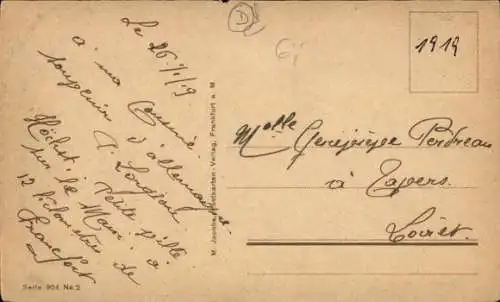 Le 26/1/19
à ma Cousine
souvenir d'allemagne
Höchst
sur le Main
petite ville à
12 kilomètres de
Francfort
M. Jacobs, Postkarten-Verlag, Frankfurt a. M.
Serie 904 No. 2
1919
Melle Perdreau
à Tavers
Loiret.